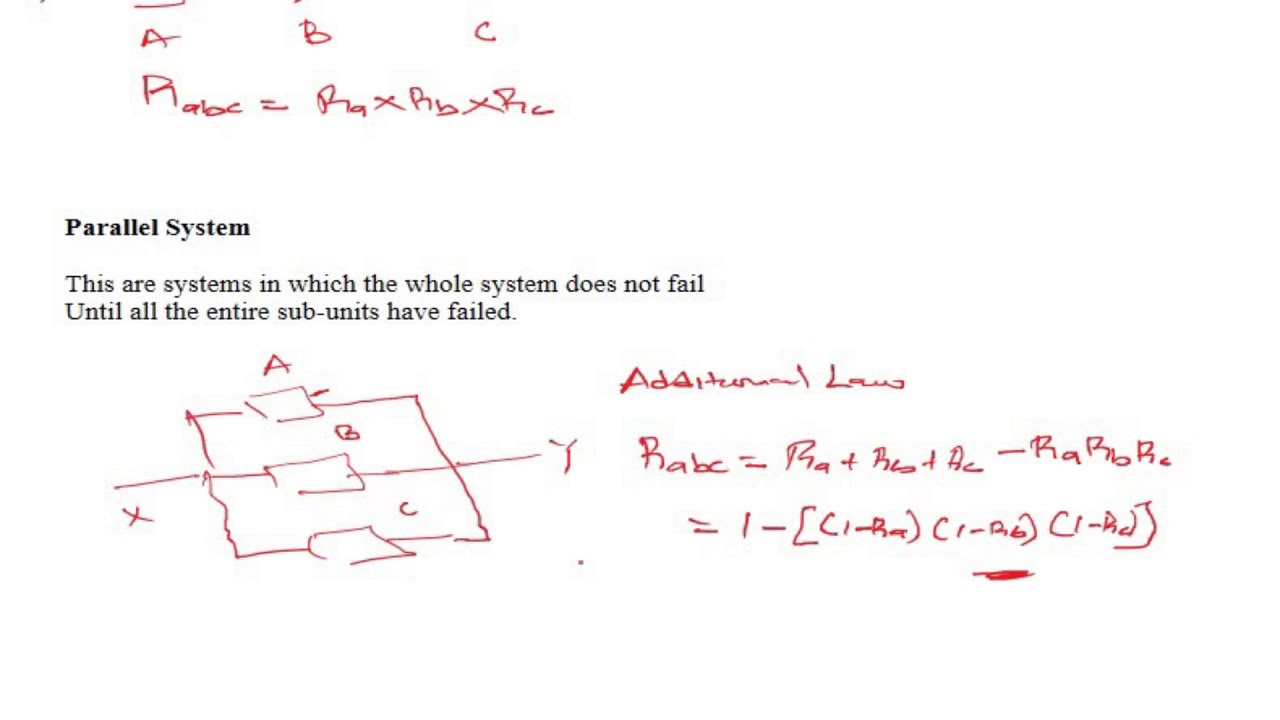 A B C
Rabc = Ra × Rb × Rc
Parallel System
This are systems in which the whole system does not fail
Until all the entire sub-units have failed.
A
B
C
X
Y
Additional Law
Rabc = Ra + Rb + Rc - RaRbRc
= 1 - [(1-Ra) (1-Rb) (1-Rc)]